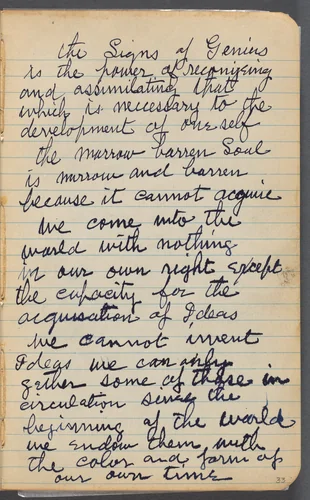 the Signs of Genius
is the power of reconizing
and assimilating that
which is neccessary to the
development of one self
the marrow barren Soul
is narrow and barren
because it cannot acquire
We come into the
world with nothing
in our own right except
the capacity for the
acquisation of Ideas
We cannot invent
Ideas we can only
gether some of those in
circulation since the
beginning of the world
we endow them with
the color and form of
our own time
33